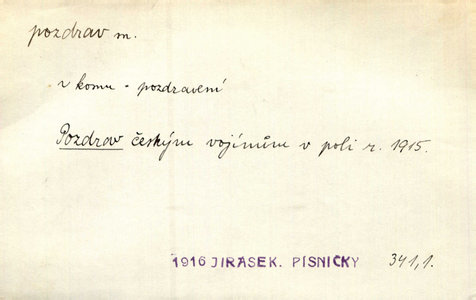 pozdrav m.
v komu - pozdravení
Pozdrav českým vojínům v poli r. 1915.
1916 JIRASEK. PÍSNIČKY 341,1.